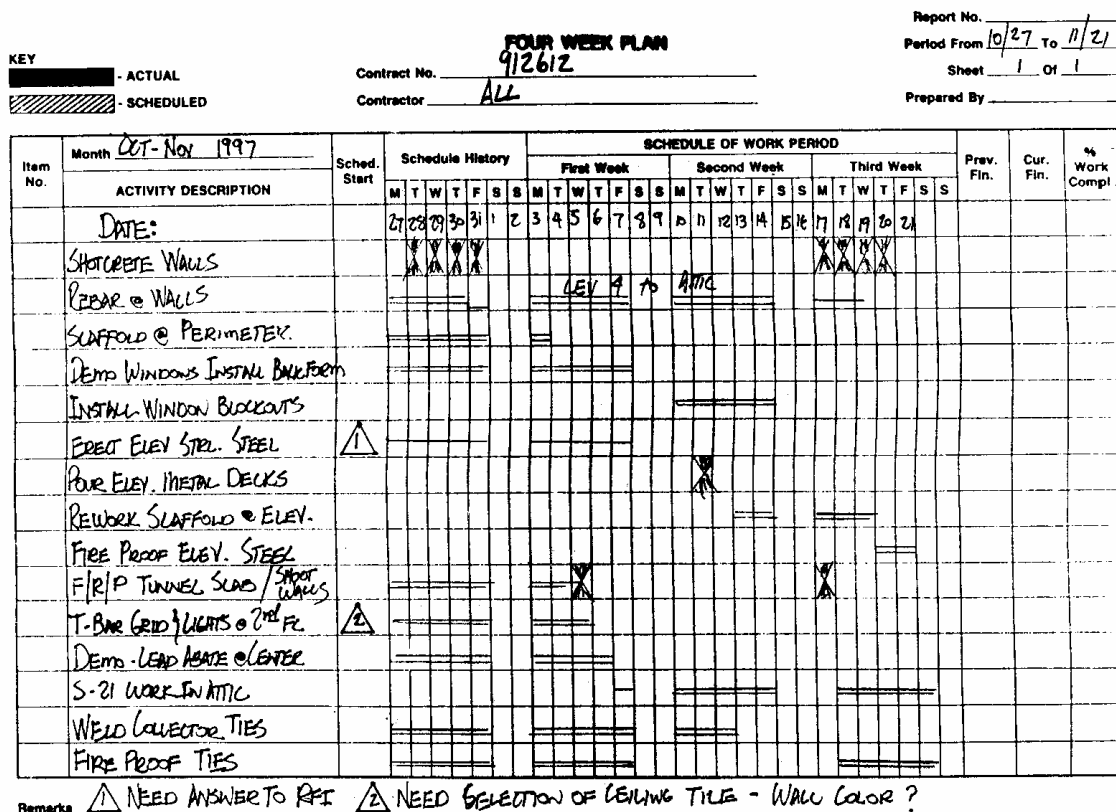 Report No.
FOUR WEEK PLAN
Period From 10/27 To 11/21
KEY
- ACTUAL
Contract No. 912612
Sheet 1 Of 1
- SCHEDULED
Contractor ALL
Prepared By
Item No.
Month OCT-NOV 1997
ACTIVITY DESCRIPTION
Sched. Start
Schedule History
SCHEDULE OF WORK PERIOD
First Week
Second Week
Third Week
Prev. Fin.
Cur. Fin.
% Work Compl.
M T W T F S S M T W T F S S M T W T F S S M T W T F S S
DATE: 27 28 29 30 31 1 2 3 4 5 6 7 8 9 10 11 12 13 14 15 16 17 18 19 20 21
SHOTCRETE WALLS
REBAR @ WALLS LEV 4 TO ATTIC
SCAFFOLD @ PERIMETER.
DEMO WINDOWS INSTALL BACKFORM
INSTALL WINDOW BLOCKOUTS
ERECT ELEV STRL. STEEL 1
POUR ELEV. METAL DECKS
REWORK SCAFFOLD @ ELEV.
FIRE PROOF ELEV. STEEL
F/R/P TUNNEL SLAB / SHOOT WALLS
T-BAR GRID & LIGHTS @ 2nd FL 2
DEMO - LEAD ABATE @ CENTER
S-21 WORK IN ATTIC
WELD COLLECTOR TIES
FIRE PROOF TIES
Remarks 1 NEED ANSWER TO RFI 2 NEED SELECTION OF CEILING TILE - WALL COLOR ?